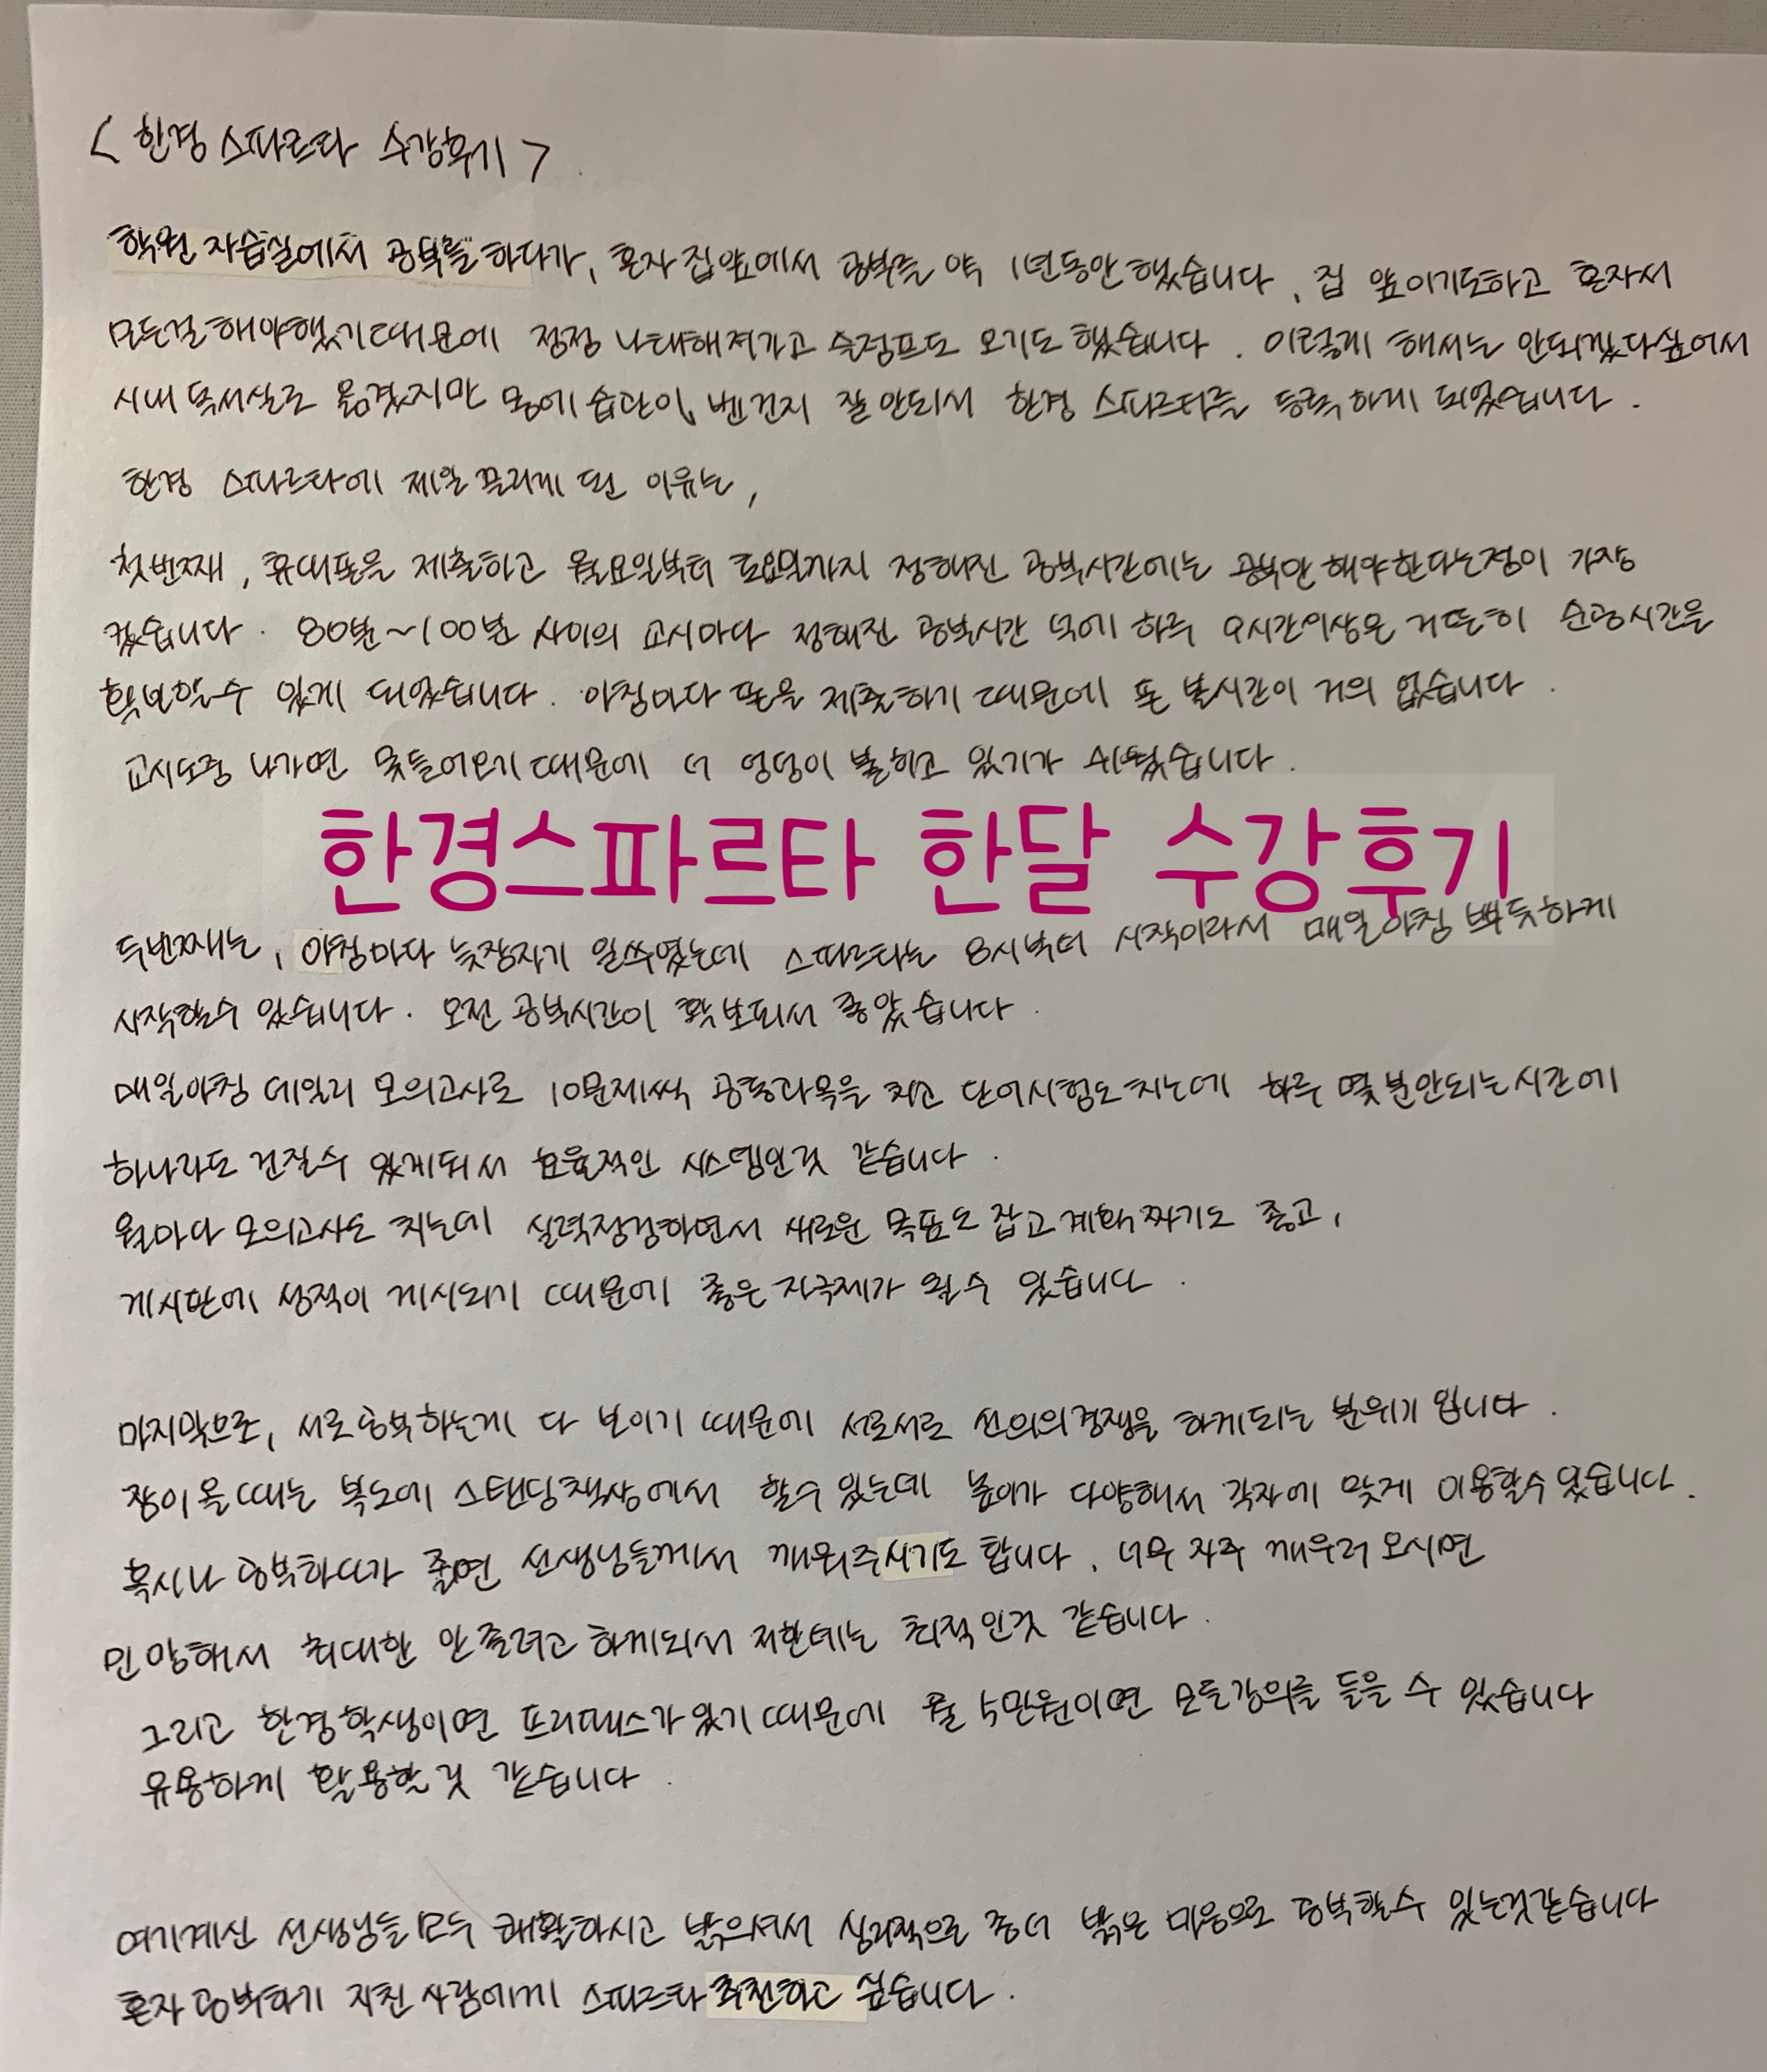 < 한경 스파르타 수강후기 >
학원 자습실에서 공부를 하다가, 혼자 집앞에서 공부를 약 1년동안 했습니다. 집 앞이기도하고 혼자서
모든걸 해야했기때문에 점점 나태해져가고 슬럼프도 오기도 했습니다. 이렇게 해서는 안되겠다싶어서
시내 독서실로 옮겼지만 몸에 습관이 벤건지 잘 안되서 한경 스파르타를 등록하게 되었습니다.
한경 스파르타에 제일 끌리게 된 이유는,
첫번째, 휴대폰을 제출하고 월요일부터 토요일까지 정해진 공부시간에는 공부만 해야한다는점이 가장
컸습니다. 80분~100분 사이의 교시마다 정해진 공부시간 덕에 하루 9시간이상은 거뜬히 순공시간을
확보할수 있게 되었습니다. 아침마다 폰을 제출하기 때문에 폰 볼시간이 거의 없습니다.
교시도중 나가면 못들어오기 때문에 더 엉덩이 붙히고 있기가 쉬웠습니다.
한경스파르타 한달 수강후기
두번째는, 아침마다 늦장자기 일쑤였는데 스파르타는 8시부터 시작이라서 매일아침 뿌듯하게
시작할수 있습니다. 오전 공부시간이 확보되서 좋았습니다.
매일아침 데일리 모의고사로 10문제씩 공통과목을 치고 단어시험도 치는데 하루 몇분안되는시간에
하나라도 건질수 있게되서 효율적인 시스템인것 같습니다.
월마다 모의고사도 치는데 실력점검하면서 새로운 목표도 잡고 계획 짜기도 좋고,
게시판에 성적이 게시되기 때문에 좋은 자극제가 될수 있습니다.
마지막으로, 서로 공부하는게 다 보이기 때문에 서로서로 선의의경쟁을 하게되는 분위기 입니다.
잠이 올때는 복도에 스탠딩책상에서 할수 있는데 높이가 다양해서 각자에 맞게 이용할수 있습니다.
혹시나 공부하다가 졸면 선생님들께서 깨워주시기도 합니다. 너무 자주 깨우러 오시면
민망해서 최대한 안 졸려고 하게되서 저한테는 최적인것 같습니다.
그리고 한경학생이면 프리패스가 있기 때문에 월 5만원이면 모든강의를 들을 수 있습니다
유용하게 활용할 것 같습니다.
여기계신 선생님들 모두 쾌활하시고 밝으셔서 심리적으로 좀더 밝은 마음으로 공부할수 있는것같습니다
혼자 공부하기 지친 사람에게 스파르타 추천하고 싶습니다.